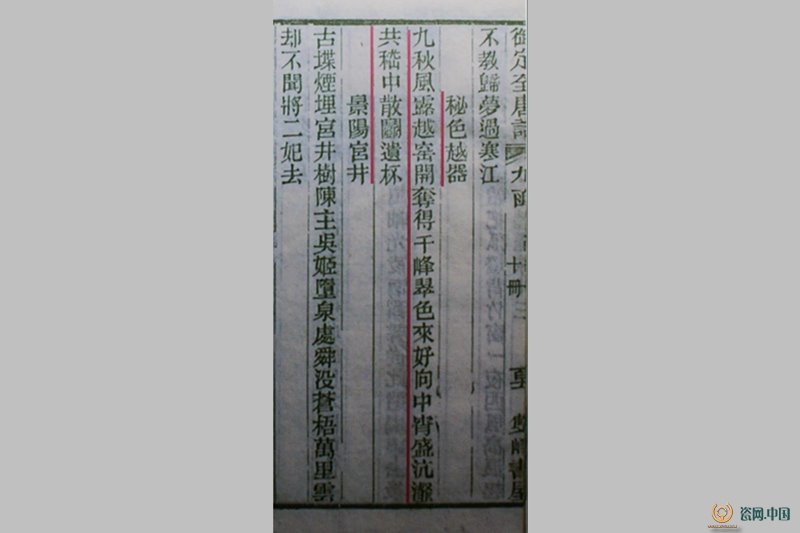 御定全唐詩
九函
十冊
雙峰書屋
不教歸夢過寒江
秘色越器
九秋風露越窑開奪得千峰翠色來好向中宵盛沆瀣
共嵇中散鬭遺杯
景陽宮井
古堞煙埋宮井樹陳主吳姬墮泉處舜没蒼梧萬里雲
却不聞將二妃去
瓷网.中国